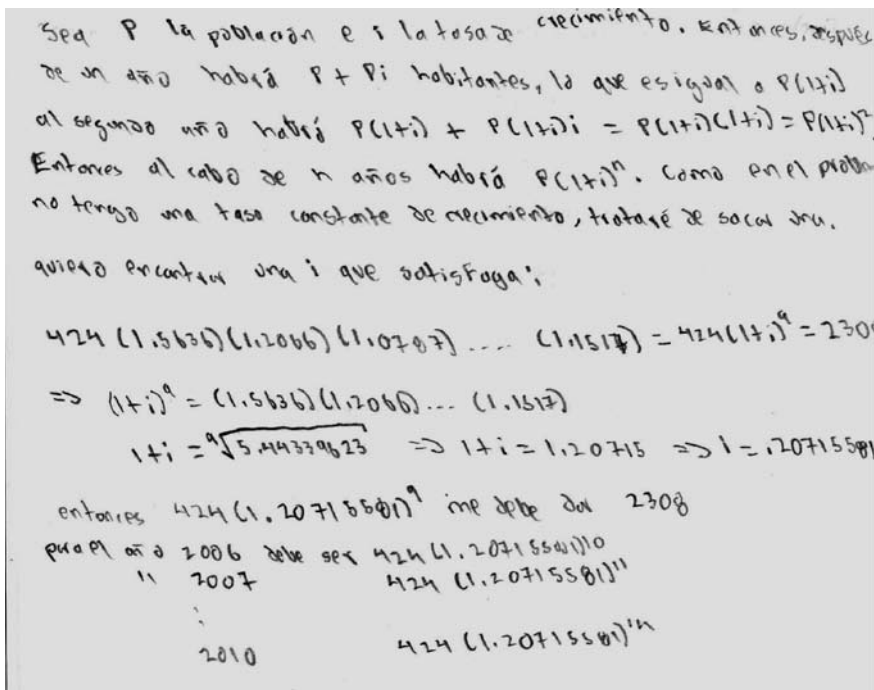 Sea P la población e i la tasa de crecimiento. Entonces, despues
de un año habrá P + Pi habitantes, lo que es igual a P(1+i)
al segundo año habrá P(1+i) + P(1+i)i = P(1+i)(1+i) = P(1+i)²
Entonces al cabo de n años habrá P(1+i)ⁿ. Como en el problem
no tengo una tasa constante de crecimiento, trataré de sacar una.
quiero encontrar una i que satisfaga:
424 (1.5636)(1.2066)(1.0787) .... (1.1517) = 424(1+i)⁹ = 2308
=> (1+i)⁹ = (1.5636)(1.2066)... (1.1517)
1+i = ⁹√5.44339623 => 1+i = 1.20715 => i = .20715581
entonces 424 (1.20715581)⁹ me debe dar 2308
para el año 2006 debe ser 424 (1.20715581)10
" 2007 424 (1.20715581)¹¹
⋮
2010 424 (1.20715581)¹⁴